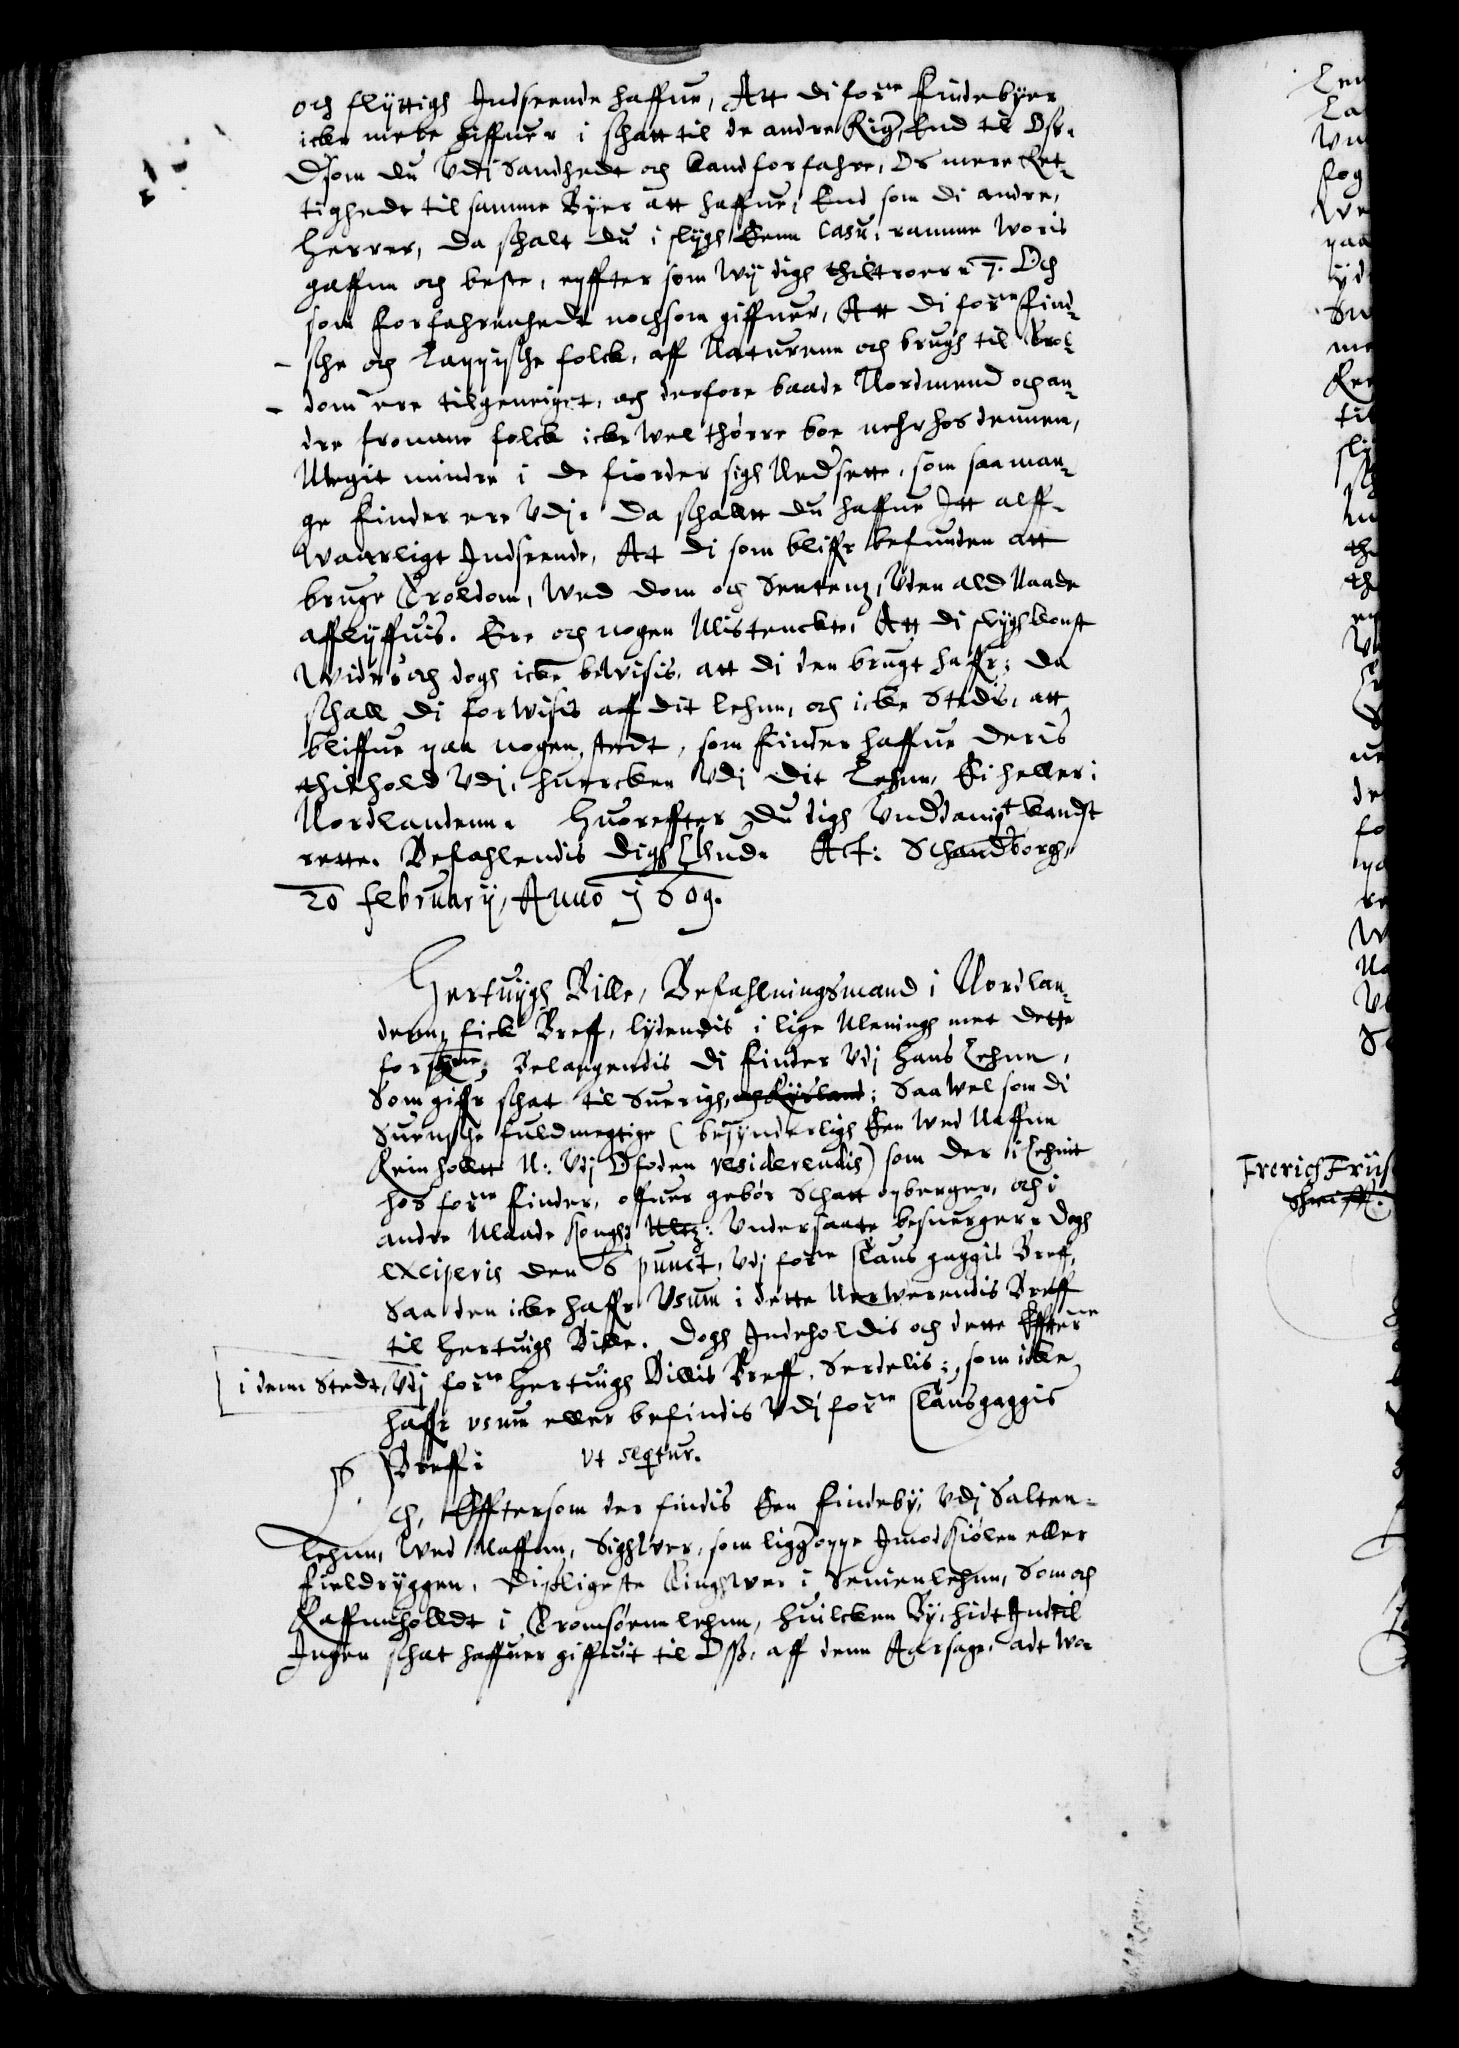 och flyttigh Indseende haffue, Att di forne Findebyer
icke mere giffuer i schatt til de andre Riger, End til Oss.
Dsom du Udi Sandhedt och kand forfahre, Os mere Ret-
tighedt til samme Byer att haffue, End som di andre,
Herrer, da schalt du i slygh Eenn Casu, ramme Woris
gaffun och beste, epffter som Wij digh thiltroer. 7. Och
som Forfahrenhedt nochsom giffuer, Att di forne Find-
sche och Lappische folck, aff Naturenn och brugh til Trol-
dom ere tilgeneiget, och derfore baade Nordmend och an-
dre fromme folck icke Wel thørre boe nehr hos dennem,
Megit mindre i de fiorder sigh Nedsette, som saa man-
ge Finder ere Udj. Da schallt du haffue Itt alff-
waarligt Indseende, At di som bliffr befunden att
bruge Troldom, Wed dom och Sententz, Uden ald Naade
afflyffuis. Ere och nogen Mistenckte, Att di slygh konst
Wider och dogh icke beuisis, att di den brugt haffr; da
schall di forwisis aff dit lehnn, och icke Stedis, att
bliffue paa nogen stedt, som Finder haffue deris
thilhold Udj, huercken Udi dit Lehnn, Ei heller i
Nordlandenn. Huoreffter du digh Underdanigt kandst
rette. Befahlendis digh Gud. Act: Schanderborgh,
20 february, Anno 1609.
Hertuigh Bille, Befahlningsmand i Nordlan-
denn, fick Breff, lydendis i lige Meningh met dette
forschne; Belangendis di Finder Udj hans Lehnn,
Som giffr schat til Suerigh, och Rysland; Saa wel som di
Suensche fuldmegtige (besynderligh Een Wed Naffn
Reinholltt N: Udj Ofoden residerendis) som der i Lehnit
hos forne Finder, offuer gebør Schatt opberger, och i
andre Maade Kongh: Mtz: Undersaate besuerger. Dogh
exciperis den 6 punct, Udj forne Claus gaggis Bref,
Saa den icke haffr Usum i dette Nerwerendis Breff
til Hertuigh Bille. Dogh Indeholdis och dette Effterne
i denn Stedt, Udj forne Hertuigh Billis Breff, Serdelis;, som icke
haffr usum eller befindis Udj forne Clausgaggis
Breff: Ut seqtur.
6. Och, Efftersom der findis Een Findeby, Udj Salten-
Lehnn, Wed Naffnn, Sighwer, som ligger oppe Imod Kiølen eller
Fieldryggen, Disligeste Kinghwer i Senienlehnn, Som och
Raffunholldt i Tromsøenn lehnn, huilcken By, hidt Indtil
Ingen schat haffuer giffuit til Oss, aff denn Aarsage, adt wo-
Frerich Friis